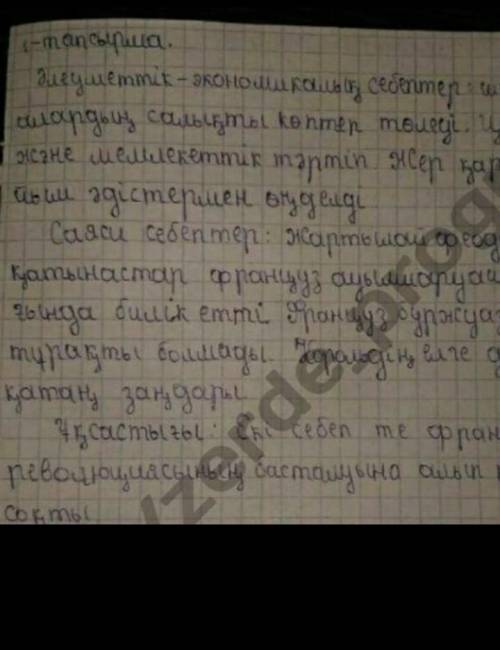 1-тапсырма.
Әлеуметтік-экономикалық себептер: ш
алардың салықты көптеп төледі.
және мемлекеттік тәртіп Жер қар
йым әдістермен өңделді
Саяси себептер: жартышай феод
қатынастар француз ауылшаруаш
ғында билік етті Француз буржуаз
тұрақты болмады. Корольдің елге д
қатаң заңдары
Ұқсастығы: Екі себеп те фран
революциясының басталуына алып к
соқты
/zerde_prog